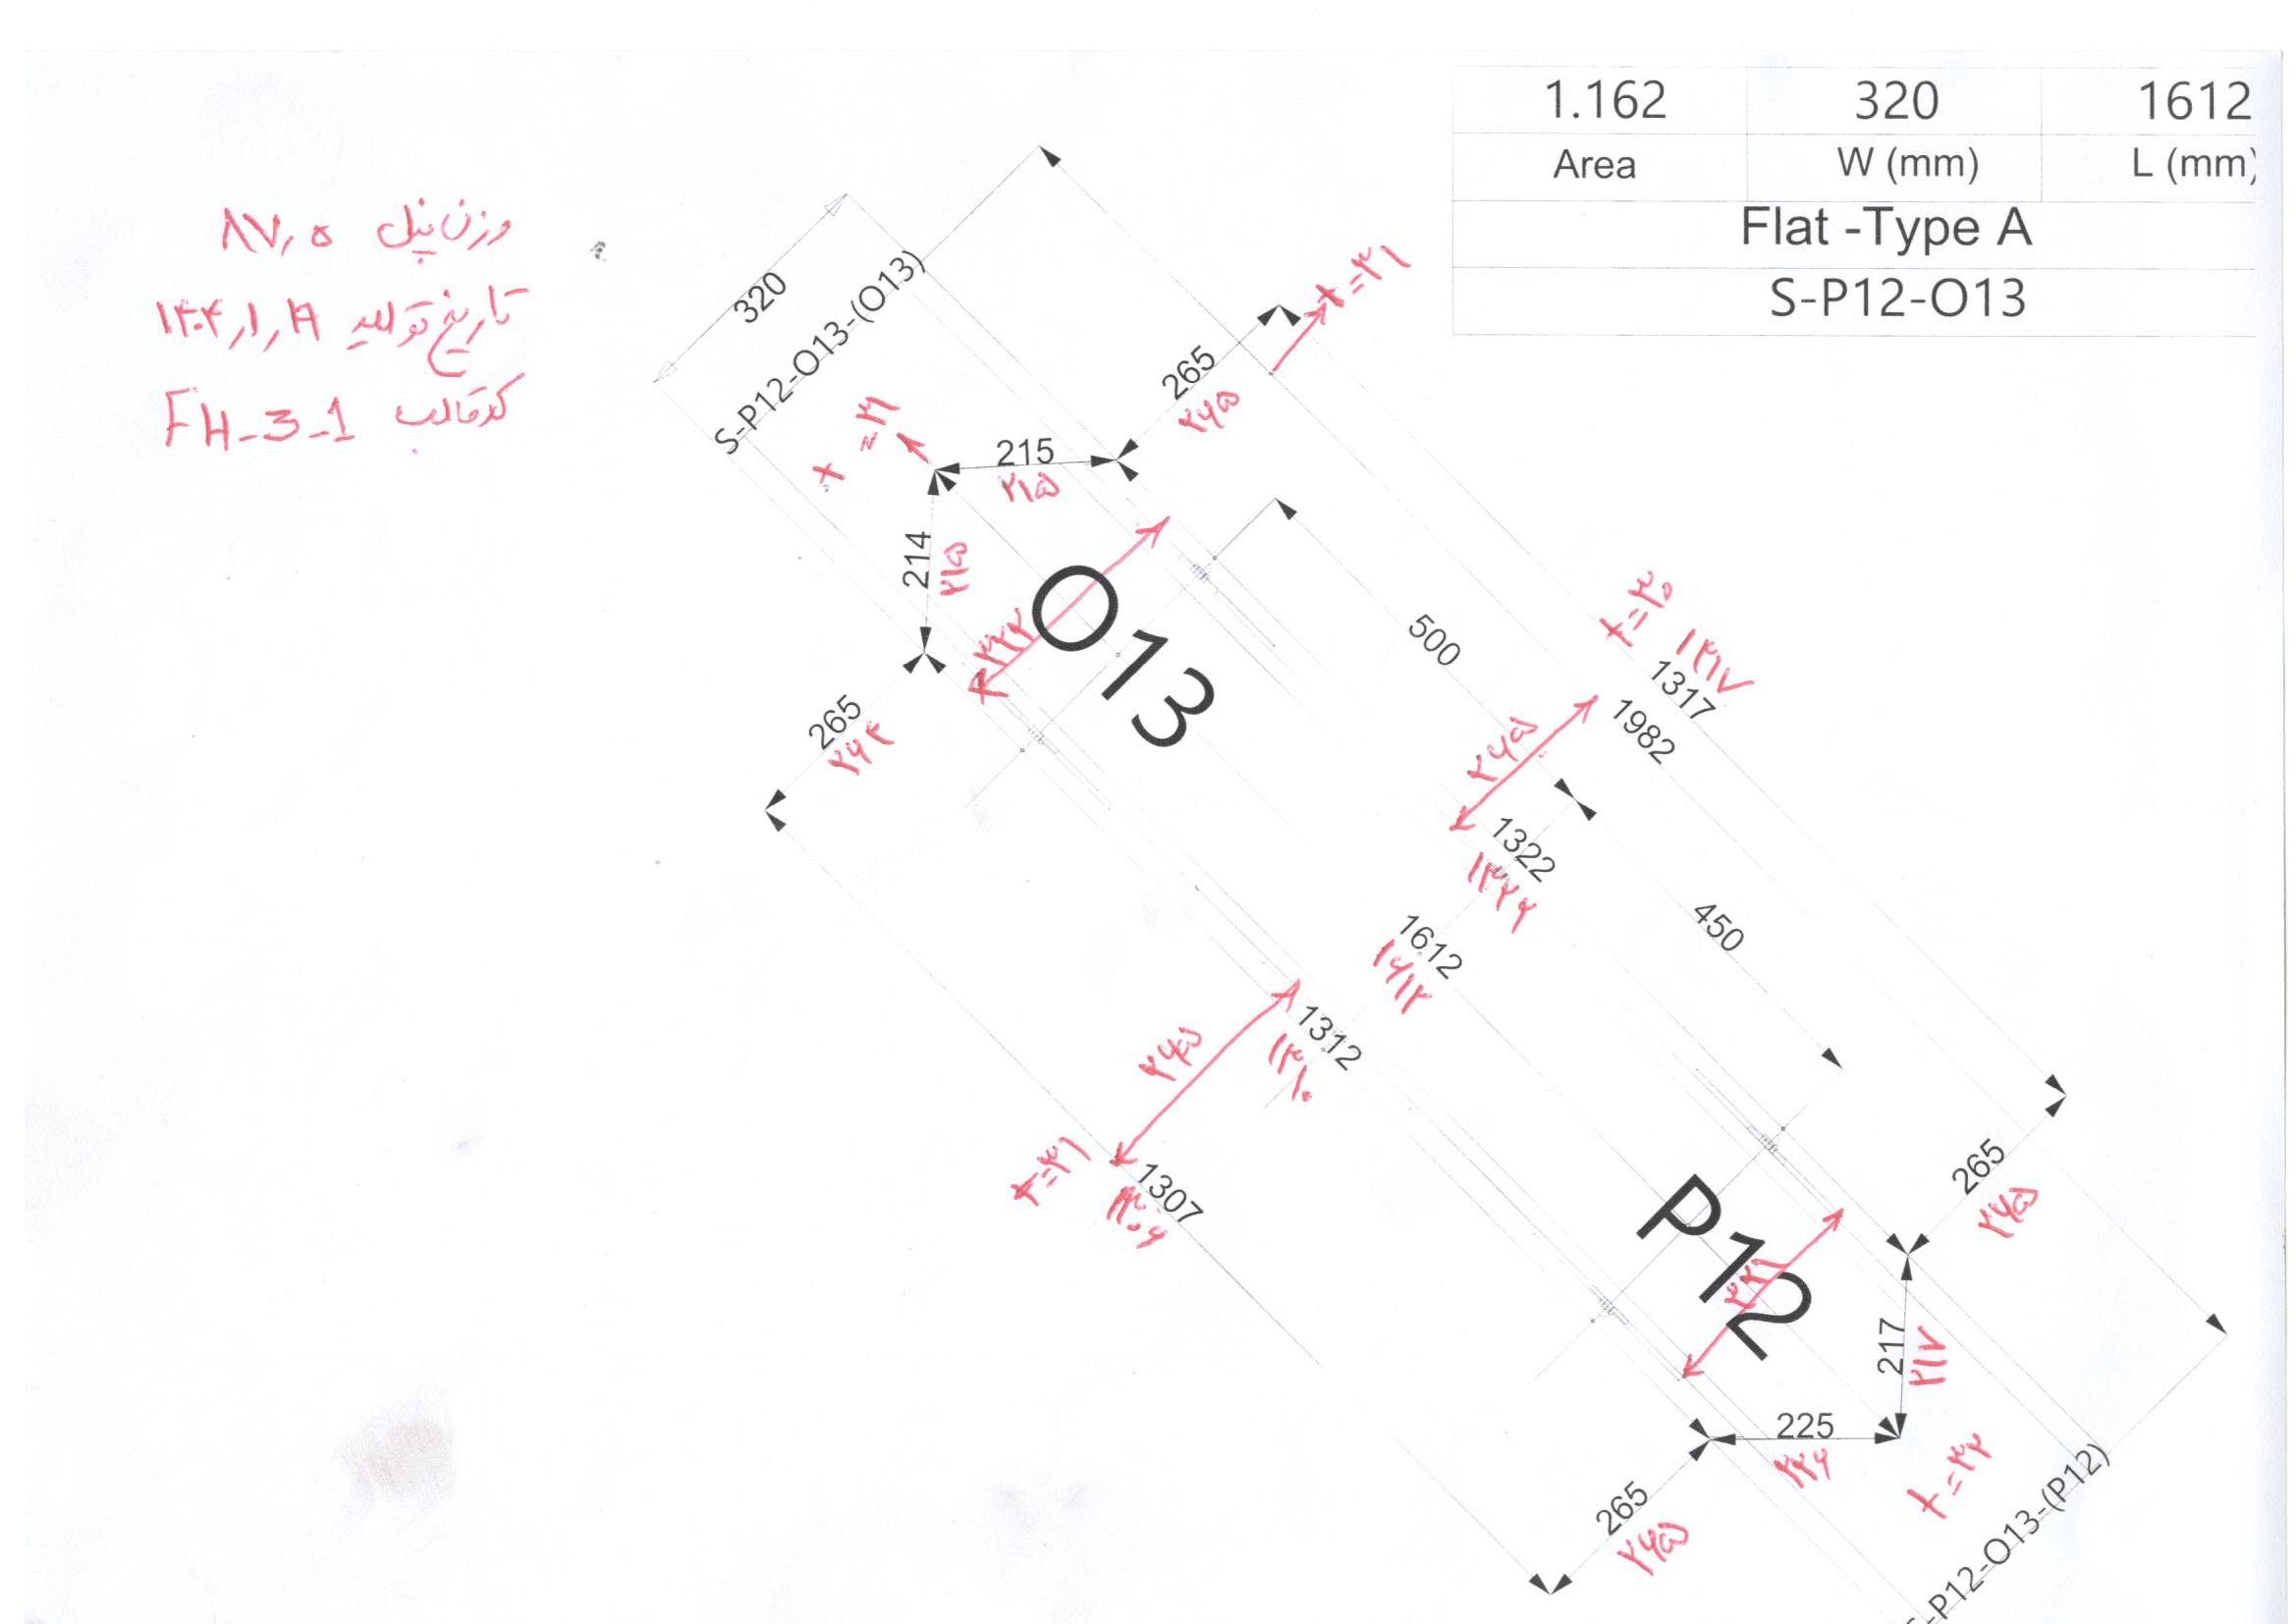 1.162 320 1612
Area W (mm) L (mm)
Flat -Type A
S-P12-O13
وزن پنل ۸۷٫۵
تاریخ تولید
کد قالب FH-3-1
320
S-P12-O13-(O13)
t=۳۱
265
۲۶۵
t=۳۱
215
۲۱۵
214
۲۱۵
O13
۳۲۲
500
265
۲۶۴
t=۳۰
۱۳۱۷
1317
1982
۲۶۵
1322
۱۳۲۲
450
1612
۱۶۱۲
1312
۱۳۱۰
۲۶۵
t=۳۱
1307
۱۳۰۶
265
۲۶۵
P12
۳۲۱
217
۲۱۷
225
۲۲۶
t=۳۲
265
۲۶۵
S-P12-O13-(P12)